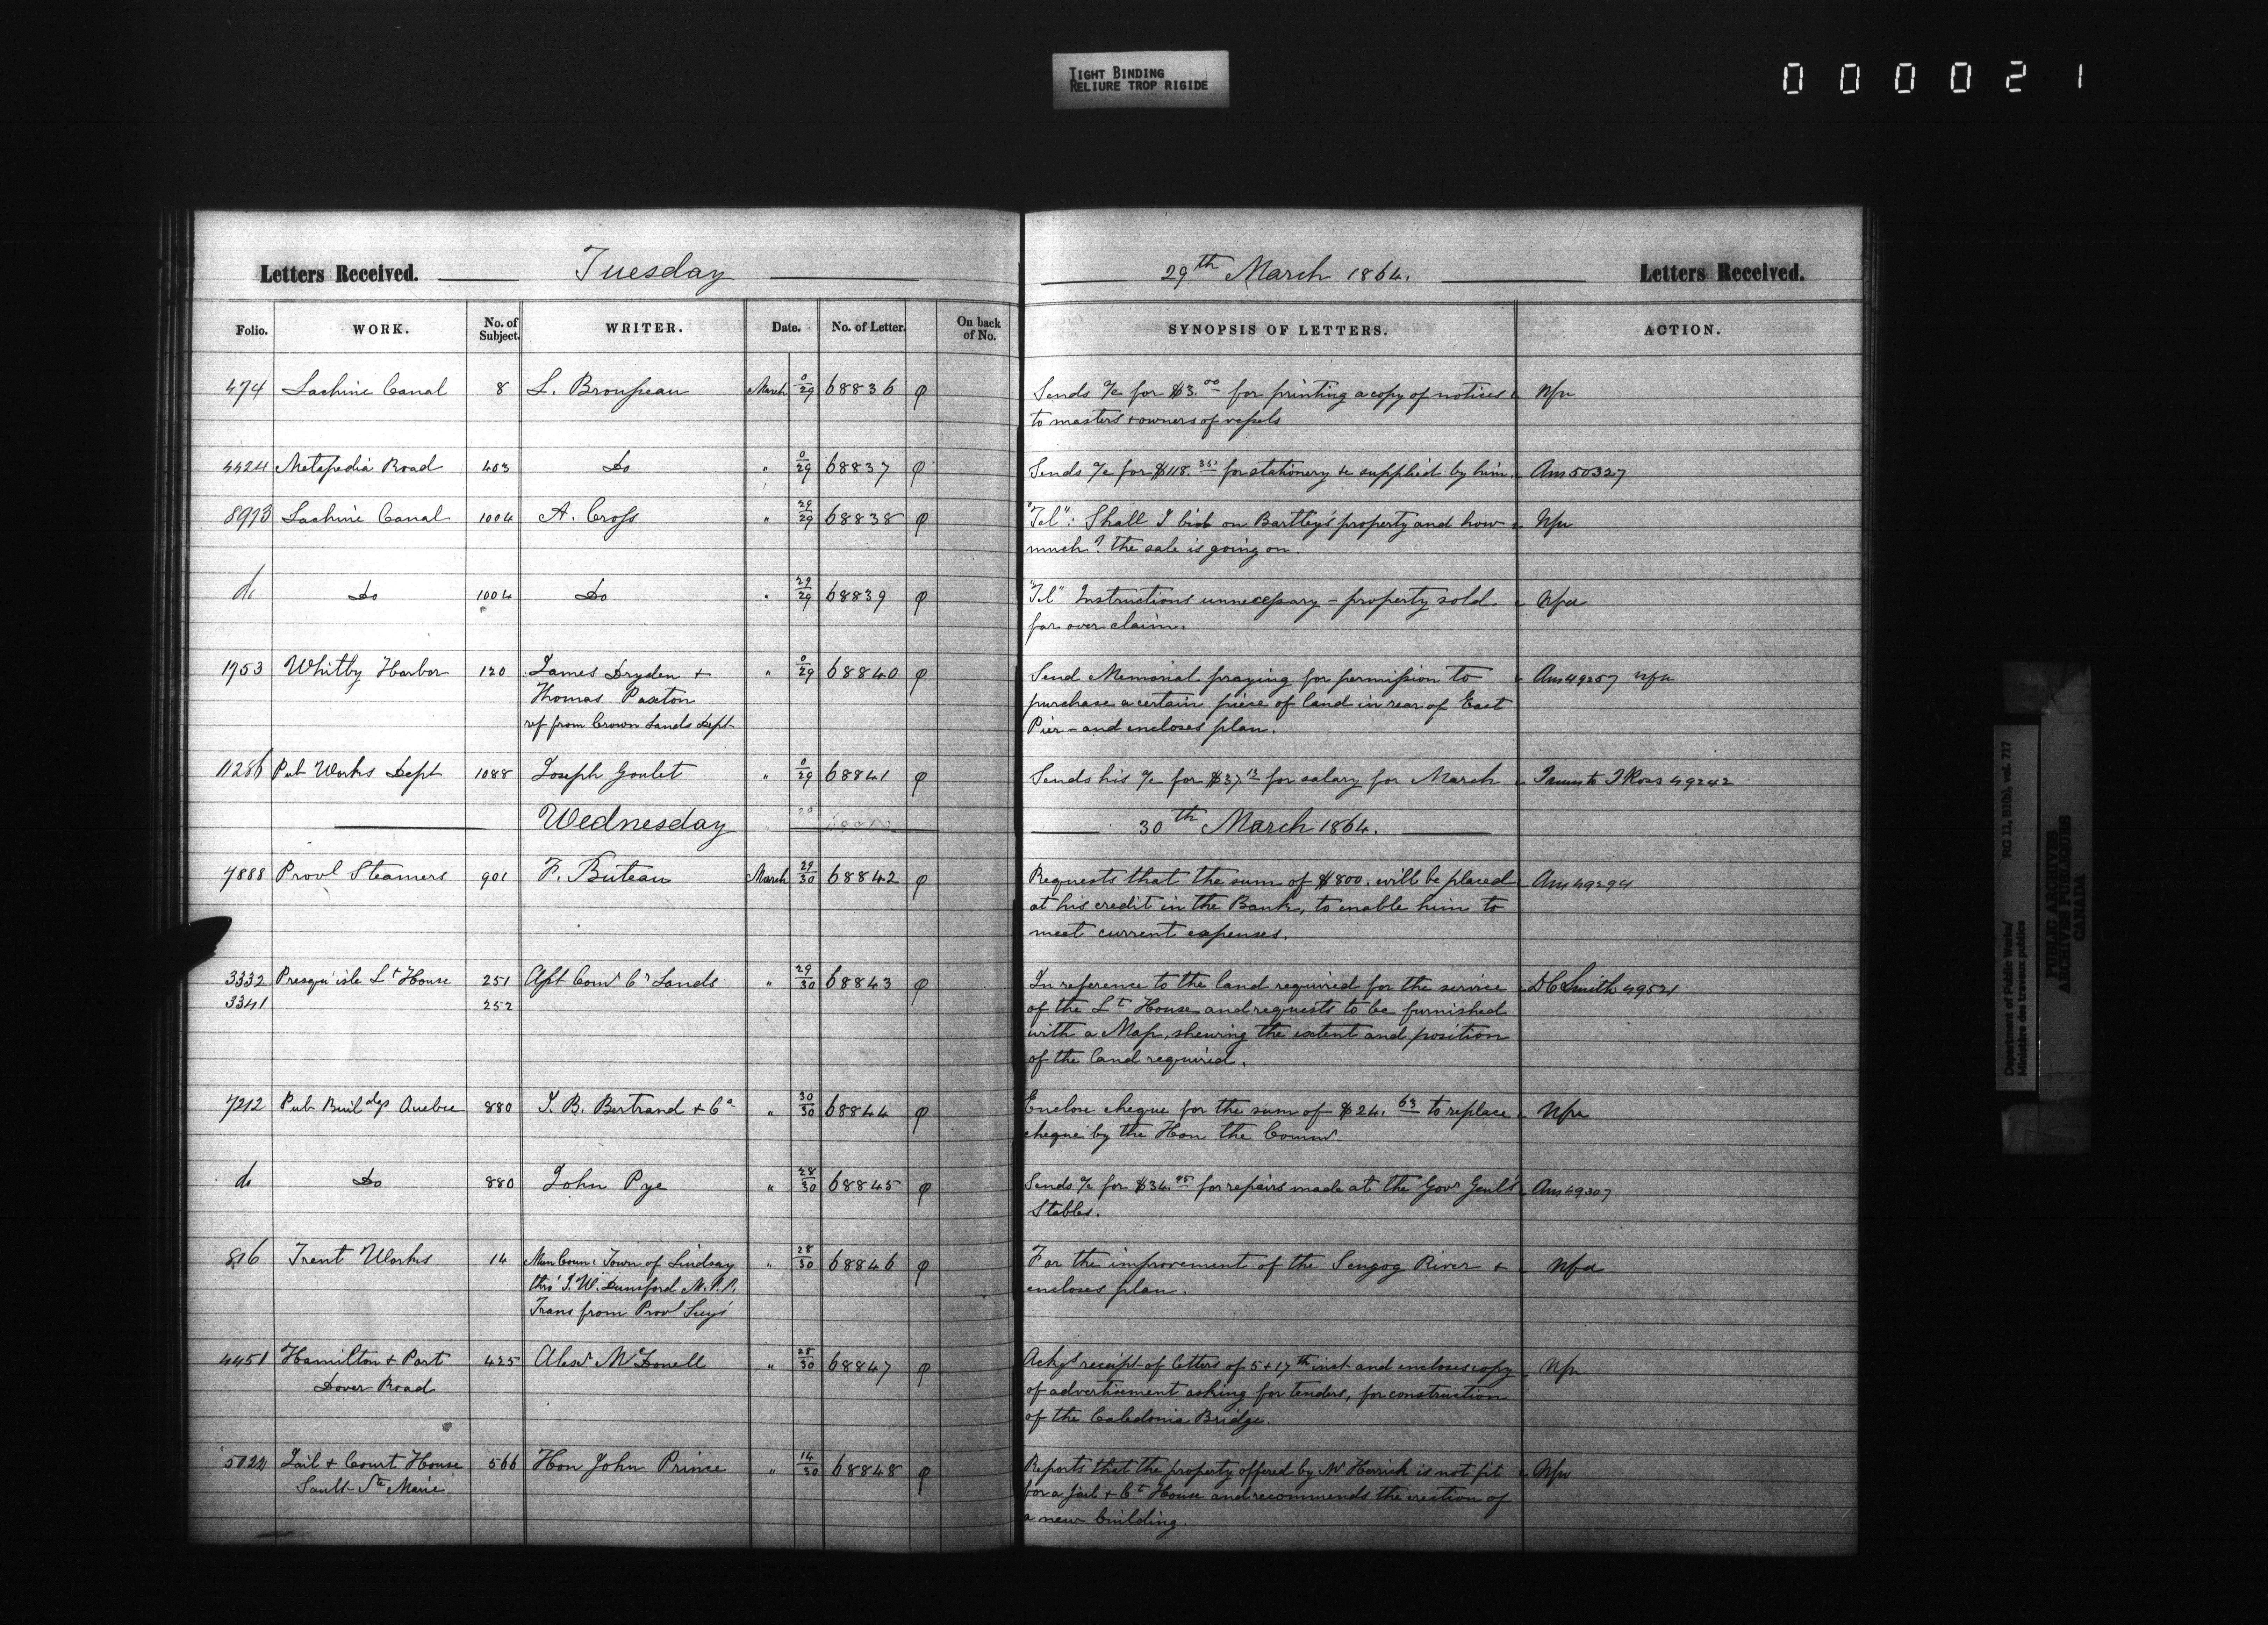 TIGHT BINDING
RELIURE TROP RIGIDE
000021
Letters Received. Tuesday 29th March 1864. Letters Received.
Folio. WORK. No. of Subject. WRITER. Date. No. of Letter. On back of No. SYNOPSIS OF LETTERS. ACTION.
474 Lachine Canal 8 L. Brousseau March 0/29 68836 φ Sends a/c for $3.00 for printing a copy of notices Nfa
to masters & owners of vessels
4424 Metapedia Road 403 Do " 0/29 68837 φ Sends a/c for $118.35 for stationery &c supplied by him. Ans 50327
8973 Lachine Canal 1004 A. Cross " 29/29 68838 φ "Tel": Shall I bid on Bartley's property and how Nfa
much? the sale is going on.
do Do 1004 Do " 29/29 68839 φ "Tel" Instructions unnecessary – property sold Nfa
far over claim.
1753 Whitby Harbor 120 James Dryden + " 0/29 68840 φ Send Memorial praying for permission to Ans 49257 nfa
Thomas Paxton purchase a certain piece of land in rear of East
ref from Crown Lands Dept Pier – and encloses plan.
11286 Pub Works Dept 1088 Joseph Goulet " 0/29 68841 φ Sends his a/c for $37.12 for salary for March Transm to J Ross 49242
Wednesday 30th March 1864.
7888 Provl Steamers 901 F. Buteau March 29/30 68842 φ Requests that the sum of $800. will be placed Ans 49294
at his credit in the Bank, to enable him to
meet current expenses.
3332 Presqu'isle Lt House 251 Asst Comr Cn Lands " 29/30 68843 φ In reference to the land required for the service D C Smith 49521
3341 252 of the Lt House and requests to be furnished
with a Map, shewing the extent and position
of the land required.
7212 Pub Buildgs Quebec 880 J. B. Bertrand + Co " 30/30 68844 φ Enclose cheque for the sum of $24.63 to replace Nfa
cheque by the Hon the Commr.
do Do 880 John Pye " 28/30 68845 φ Sends a/c for $34.95 for repairs made at the Govr Genl's Ans 49307
Stables.
816 Trent Works 14 Mun Coun: Town of Lindsay " 28/30 68846 φ For the improvement of the Scugog River + Nfa
thro' J. W. Dunsford M.P.P. encloses plan.
Trans from Provl Secy's
4451 Hamilton + Port 425 Alexr McDonell " 28/30 68847 φ Ackgs receipt of letters of 5 + 17th inst and encloses copy Nfa
Dover Road of advertisement asking for tenders, for construction
of the Caledonia Bridge.
5022 Jail + Court House 566 Hon John Prince " 14/30 68848 φ Reports that the property offered by Mr Herrick is not fit Nfa
Sault Ste Marie for a Jail + Ct House and recommends the erection of
a new building.
Department of Public Works/
Ministère des travaux publics
RG 11, B1(b), vol. 717
PUBLIC ARCHIVES
ARCHIVES PUBLIQUES
CANADA